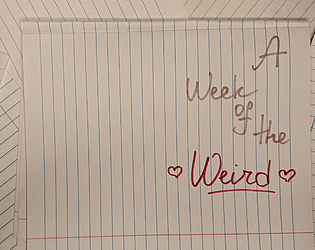 A
Week
of
the
♡ Weird ♡